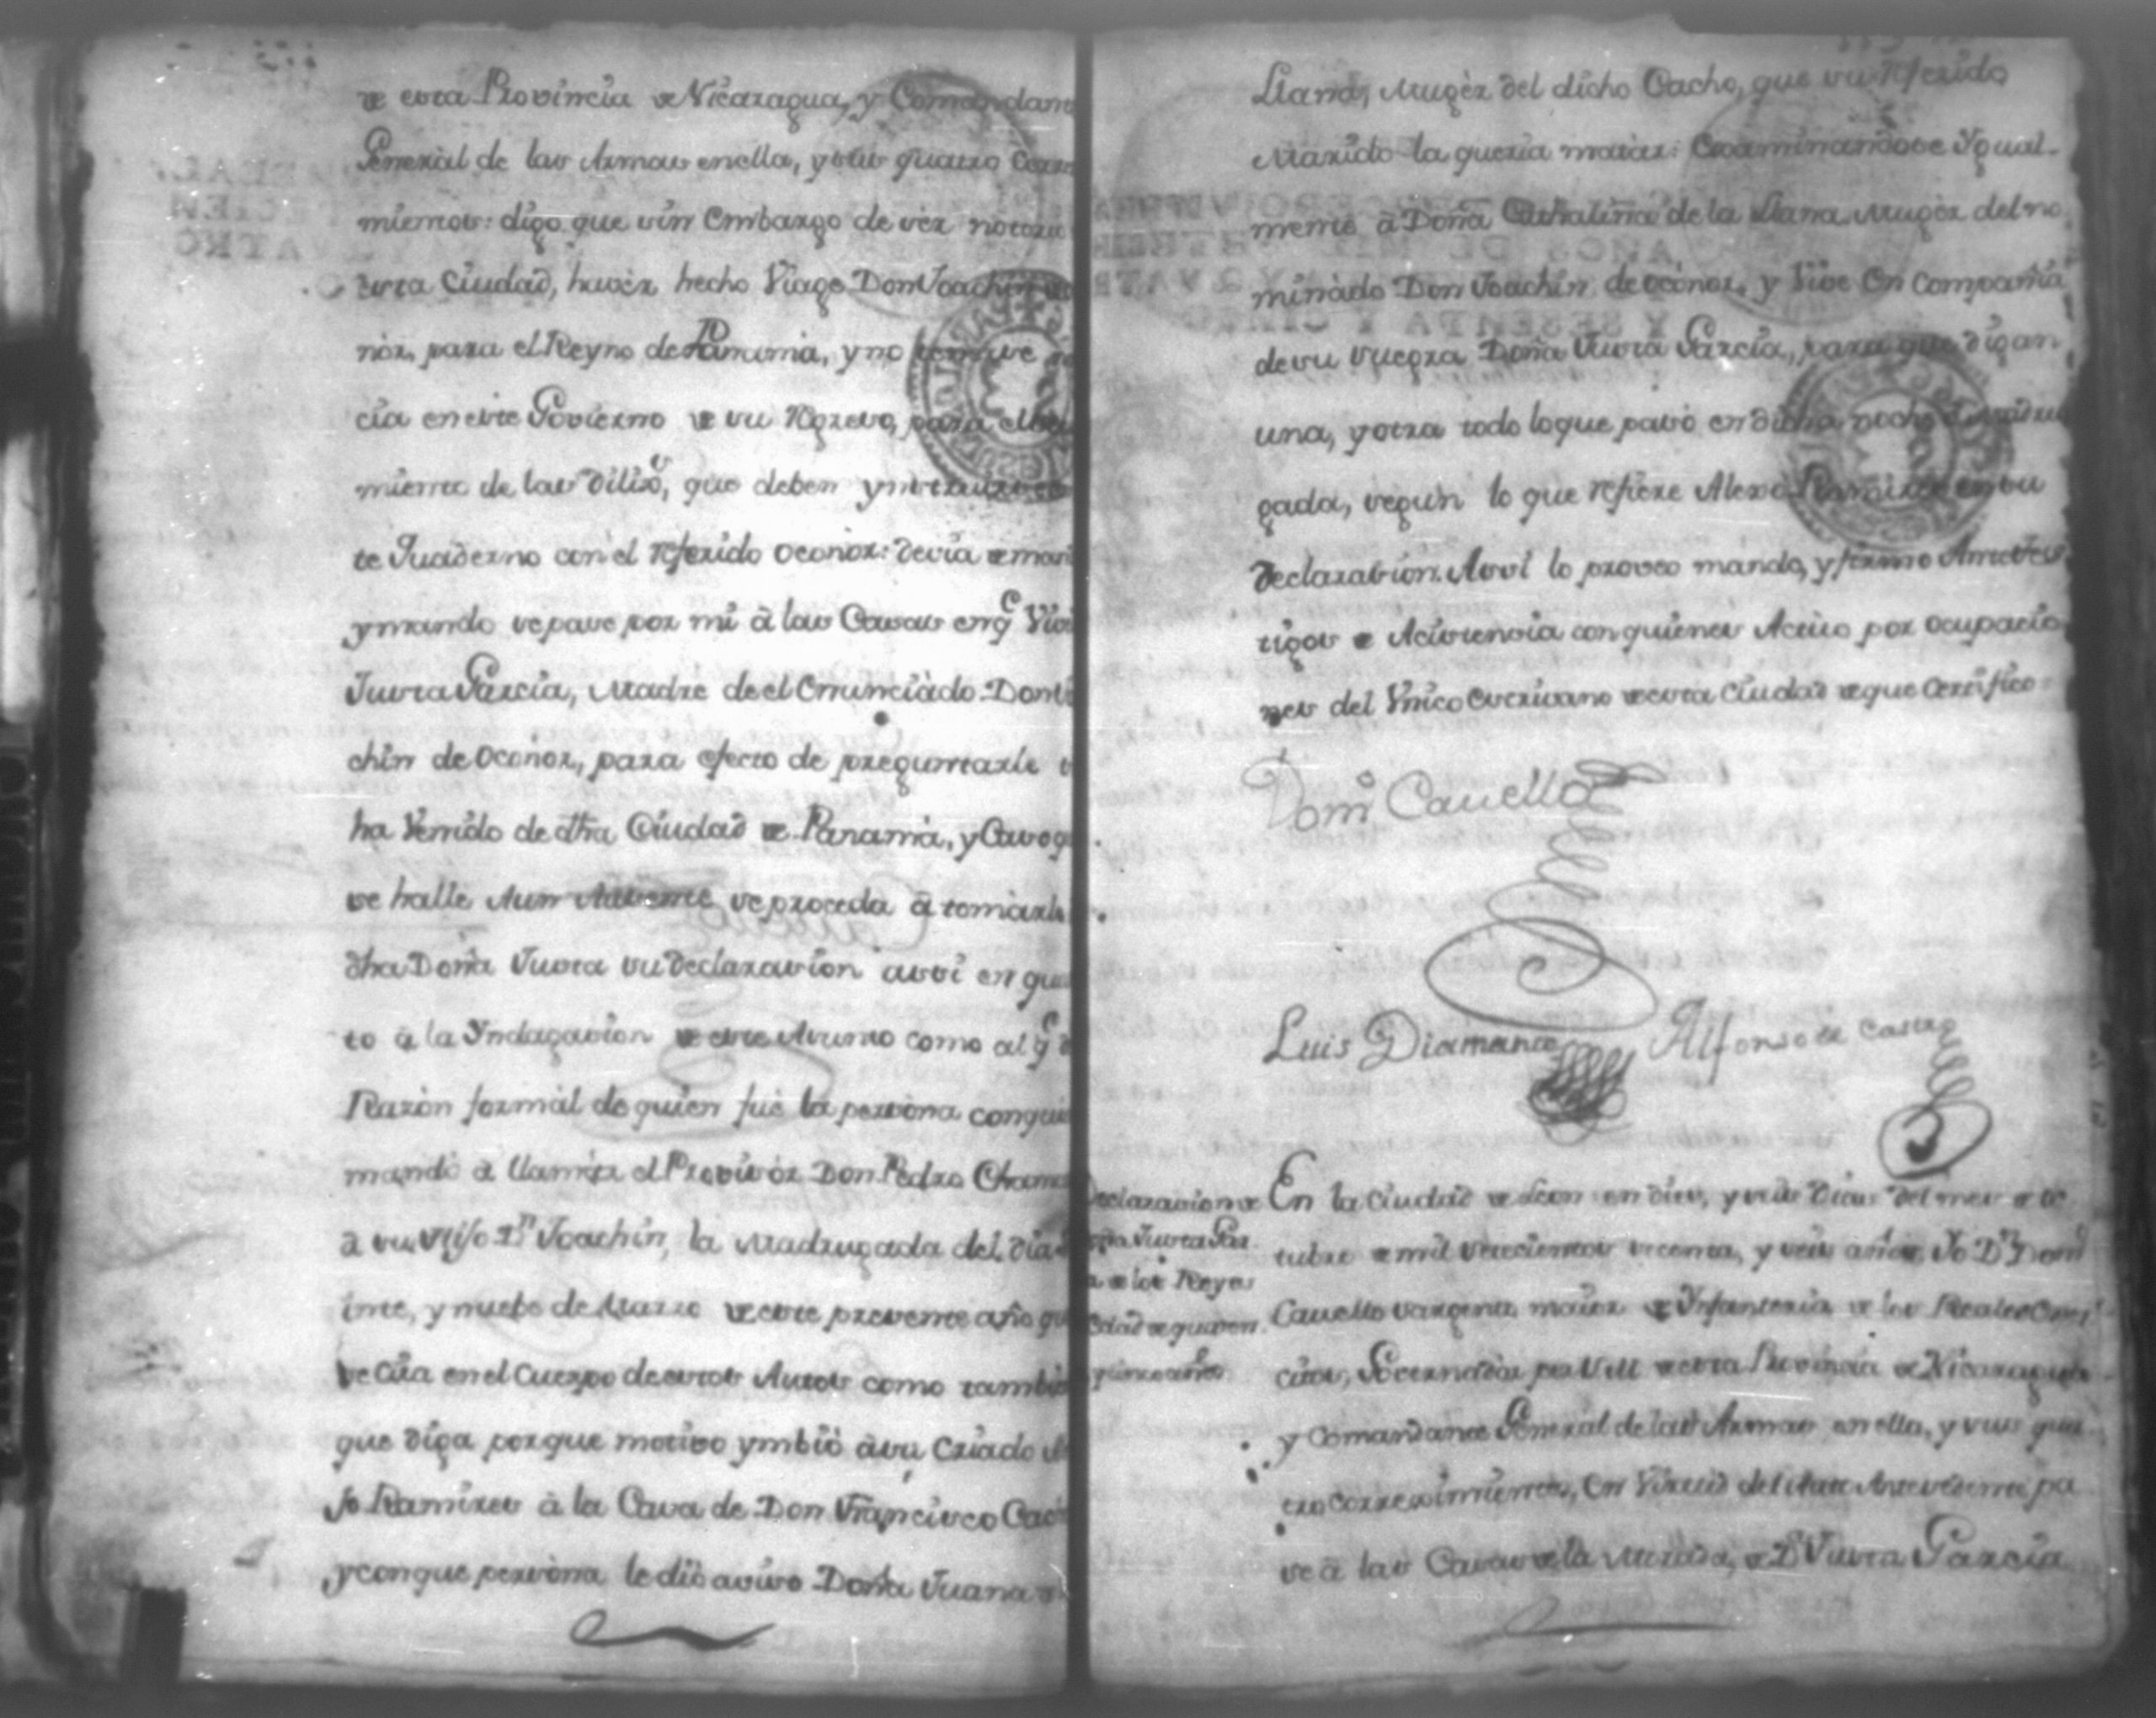 de esta Provincia de Nicaragua, y Comandan
General de las Armas en ella, y sus quatro Corr
mientos: digo que sin Embargo de ser notori
esta Ciudad, haver hecho Viage Don Joachin
nor, para el Reyno de Panama, y no
cia en este Govierno de su Regreso, para el
miento de las Dilixs, que deben
te Quaderno con el referido oconor: devia de man
y mando se pase por mi â las Casas en q Vi
Justa Garcia, Madre de el Enunciado Don
chin de oconor, para efecto de preguntarle
ha Venido de dha Ciudad de Panamà, y Caso q
se halle Aun Ausente se proceda â tomarle
dha Doña Justa su declarasion assi en qua
to â la Yndagasion de este Asunto como al q
Razòn formàl de quien fuè la persòna con qui
mandò â llamàr el Provisòr Don Pedro Chamo
â su Hijo Dn Joachin, la Madrugada del dia
inte, y nuebe de Marzo de este presente año q
se cita en el Cuerpo de estos Autos como tambi
que diga por que motivo ymbiò â su Criado Al
jo Ramires â la Casa de Don Francisco Cac
y con que persòna le diò aviso Doña Juana
Llana, Mugèr del dicho Cacho, que su referido
Marido la queria matar: Examinandose Ygual-
mente â Doña Cathalina de la Llana Mugèr del no
minàdo Don Joachin de oconor, y Vive En Compañia
de su suegra Doña Justa Garcia, para que digan
una, y otra todo lo que pasò en dicha noche
gada, segun lo que refiere Alexo Ramires en su
declarasion. Assi lo proveo mando, y firmo
tigos de Acistensia con quienes Actuo por ocupacio
nes del Vnico Escrivano de esta Ciudad de que Certifico
Domo Cavello
Luis Diamante Alfonso de Castro
Declarasion de
oña Justa Gar
a de los Reyes
Edad de quaren
y sinco años
En la Ciudad de Leon en dies, y seis Dias del mes de oc
tubre de mil setecientos secenta, y seis años, Yo Dn Domo
Cavello Sargento maior de Ynfanteria de los Reales Exer
citos, Governadòr por S M de esta Provincia de Nicaragua
y Comandante General de las Armas en ella, y sus qua
tro Correximientos, En Virtud del Auto Antesedente pa
se â las Casas de la Morada, de Da Justa Garcia